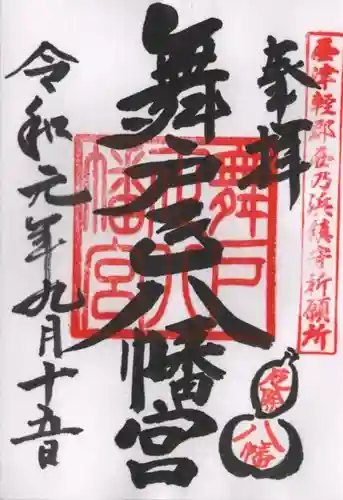 津軽
乃浜鎮守祈願所
奉拝
舞戸正八幡宮
舞戸
正八
幡宮
令和元年九月十五日
厄除
八幡